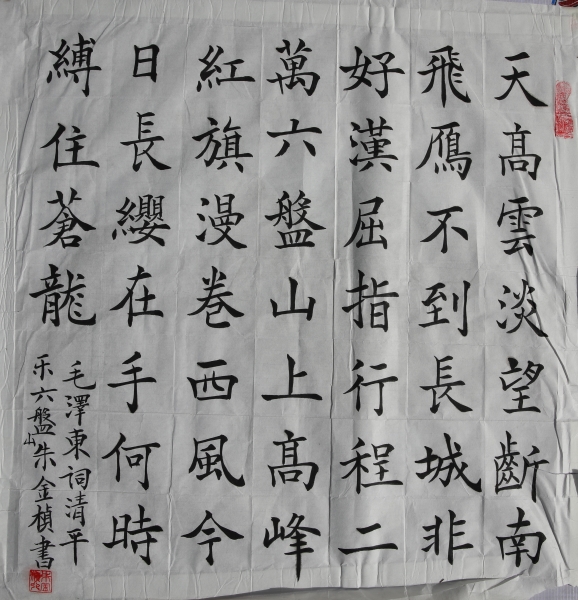 天高雲淡望斷南
飛鴈不到長城非
好漢屈指行程二
萬六盤山上高峰
紅旗漫卷西風今
日長纓在手何時
縛住蒼龍
毛澤東詞清平
乐六盤山朱金楨書